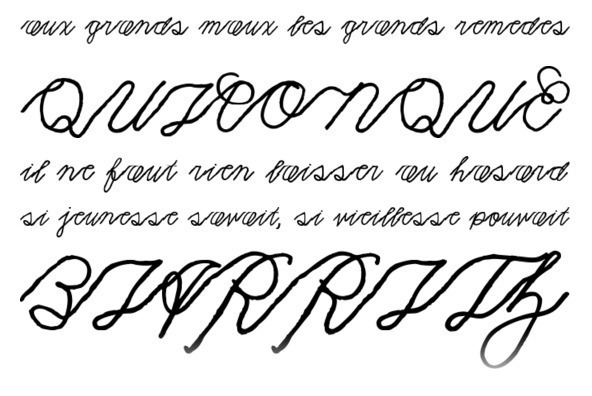 aux grands maux les grands remedes
QUICONQUE
il ne faut rien laisser au hasard
si jeunesse savait, si vieillesse pouvait
BIARRITz